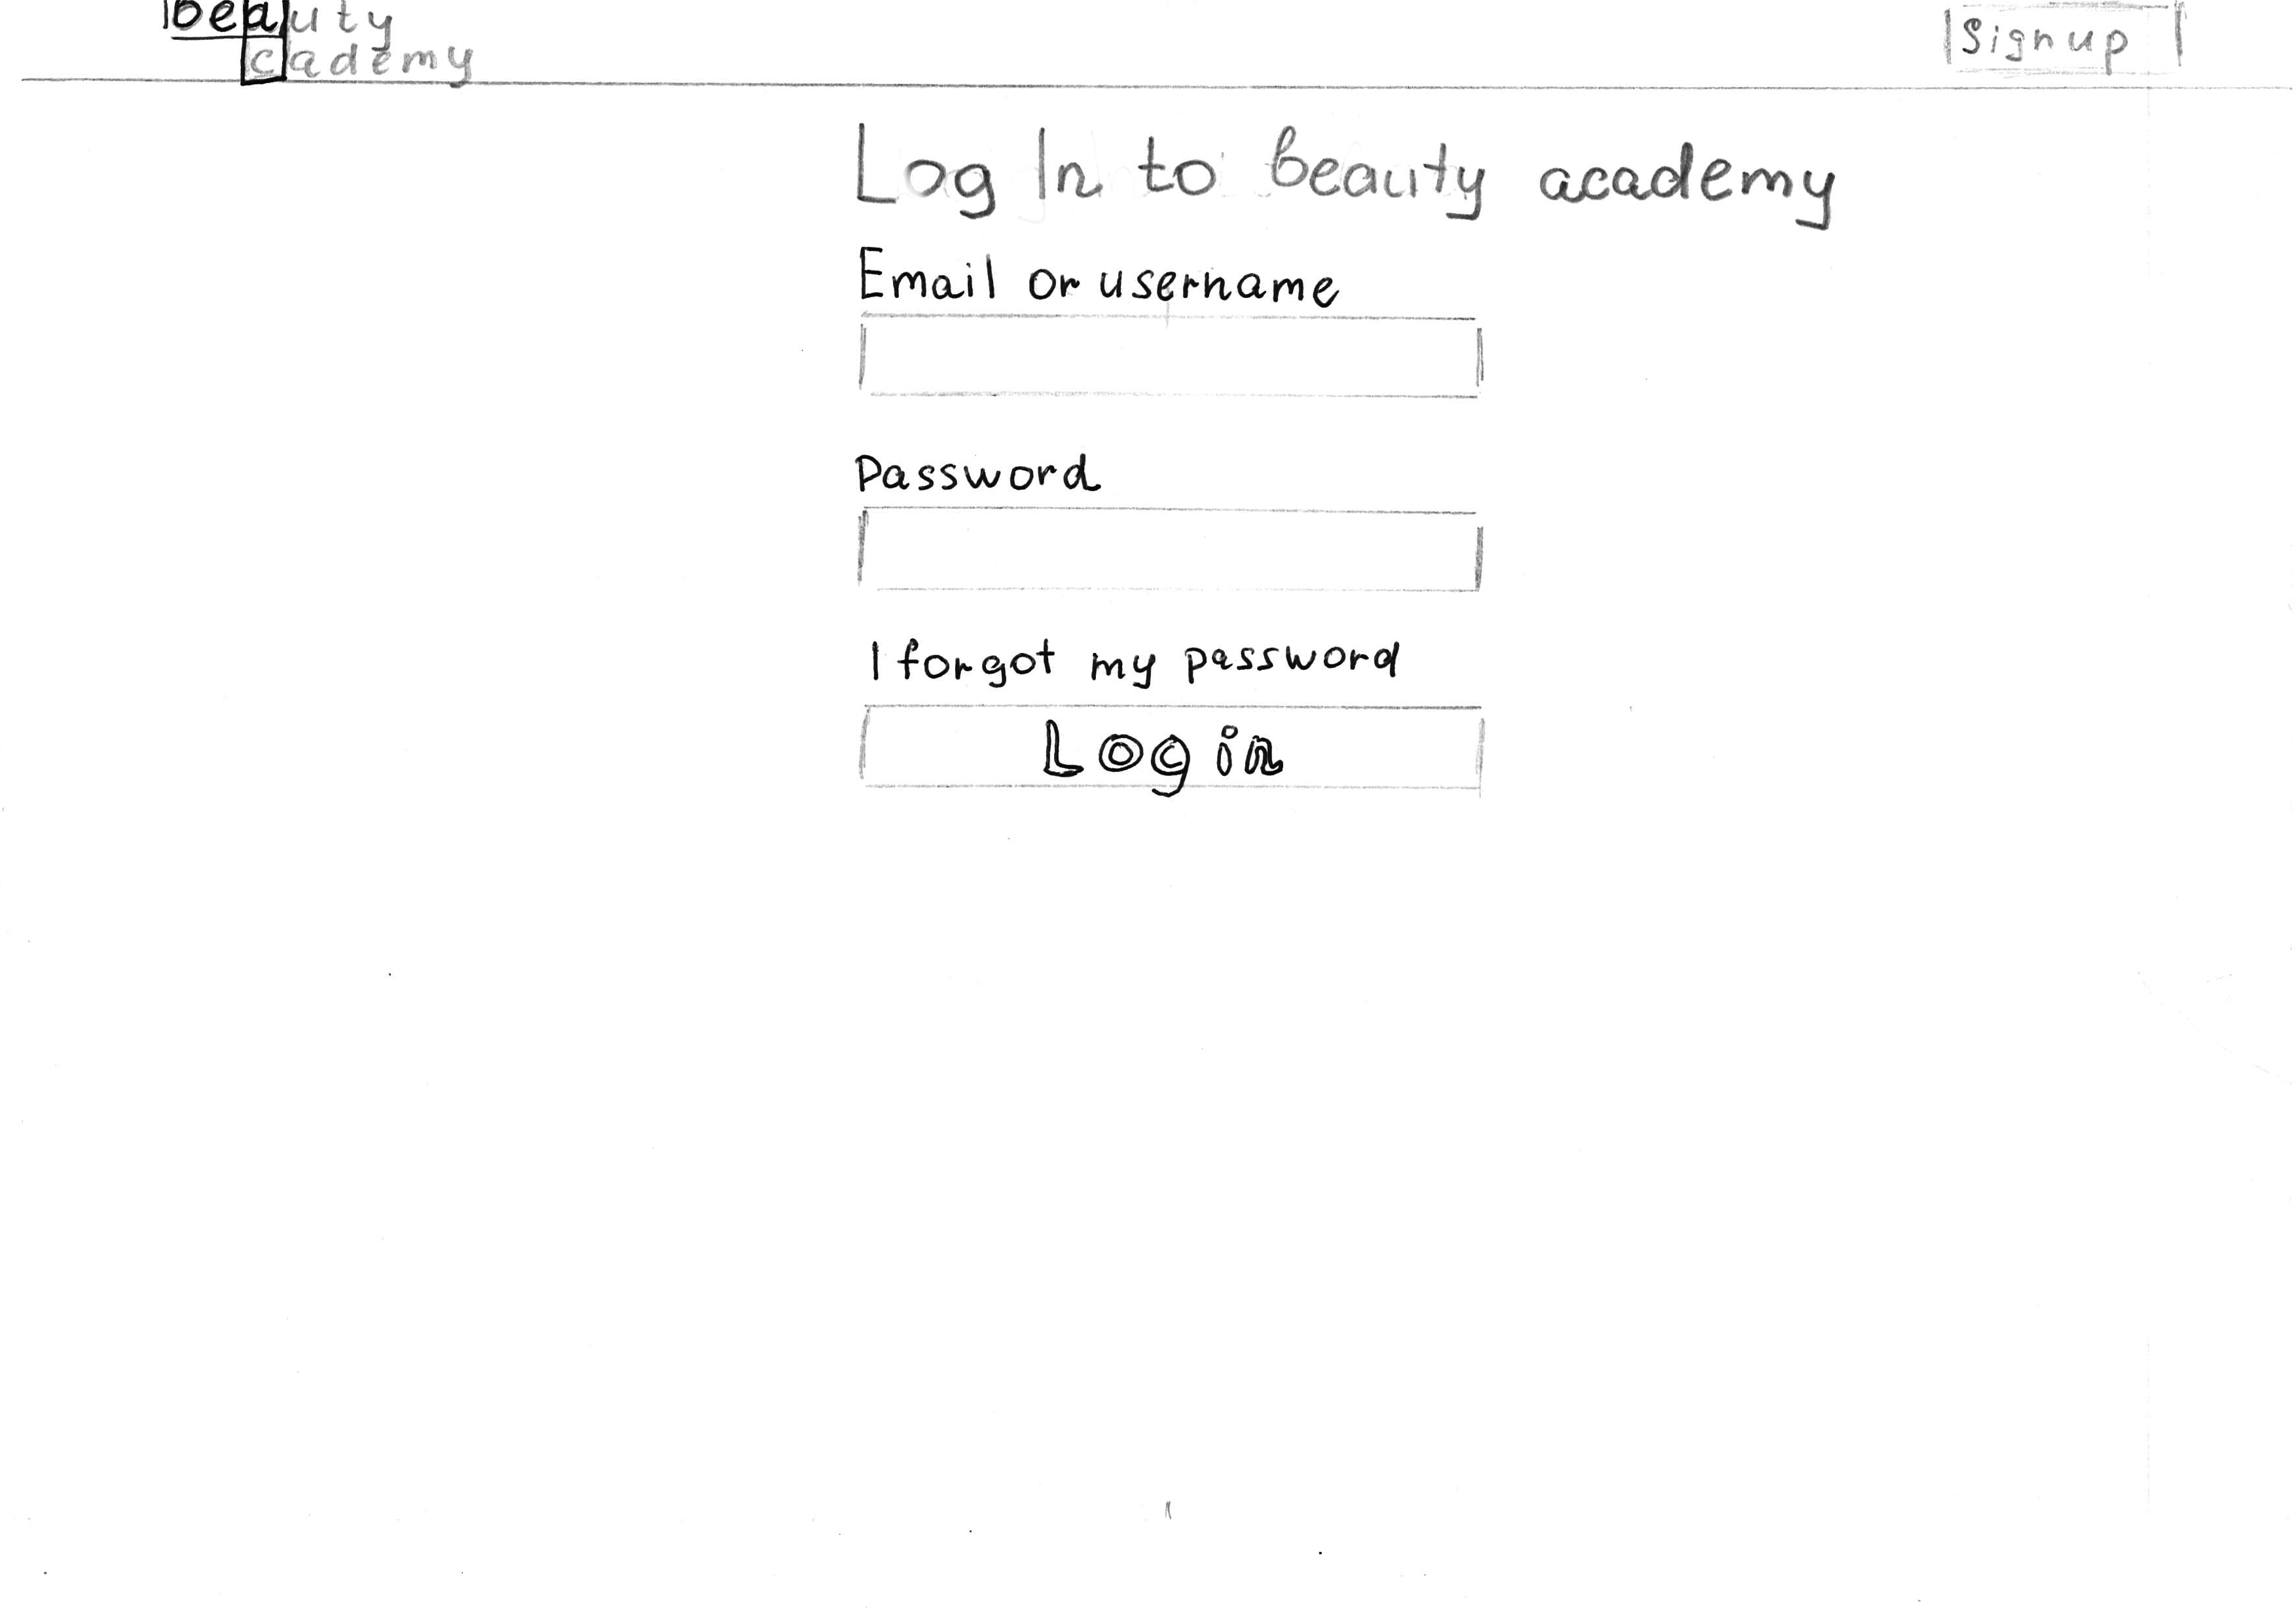 beauty
cademy
Sign up
Log In to beauty academy
Email or username
Password
I forgot my password
Log in